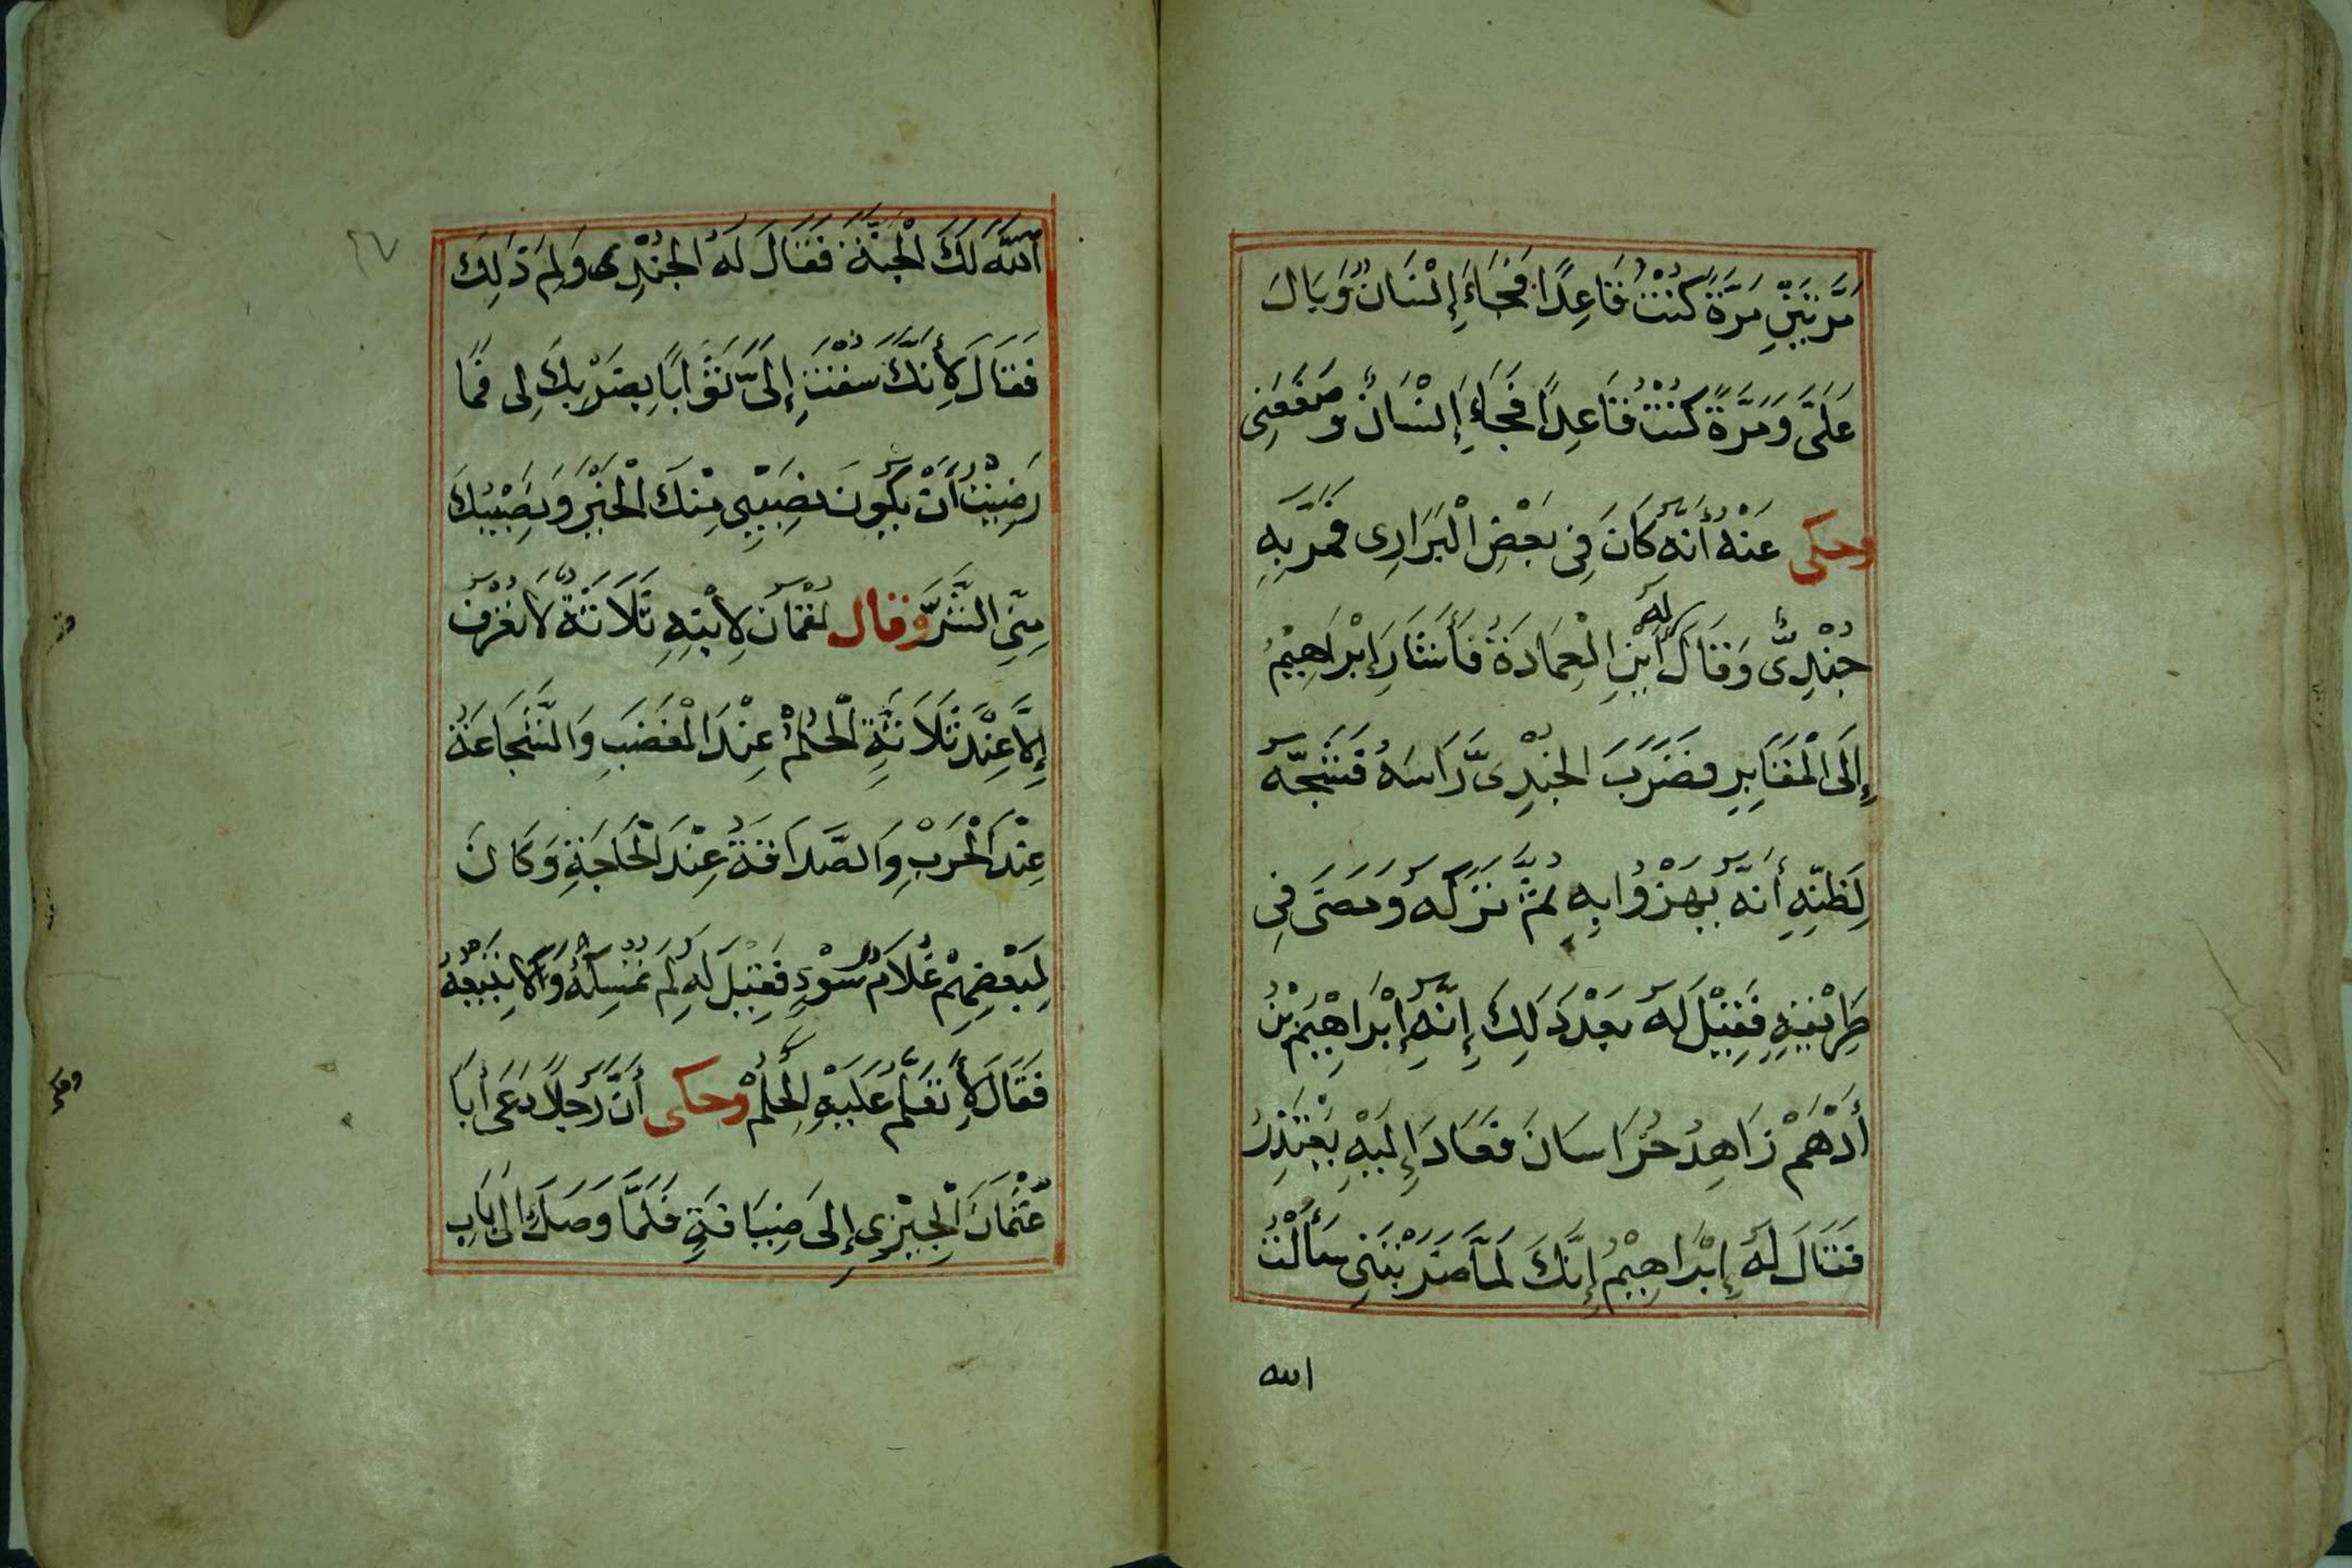 مَرَّتَيْنِ مَرَّةً كُنْتُ قَاعِدًا فَجَاءَ إِنْسَانٌ وَبَالَ
عَلَىَّ وَمَرَّةً كُنْتُ قَاعِدًا فَجَاءَ إِنْسَانٌ وَصَفَعَنِى
وحكى عَنْهُ أَنَّهُ كَانَ فِى بَعْضِ الْبَرَارِى فَمَرَّ بِهِ
جُنْدِىٌّ وَقَالَ لَهُ أَيْنَ الْعِمَارَةُ فَأَشَارَ إِبْرَاهِيْمُ
إِلَى الْمَقَابِرِ فَضَرَبَ الْجُنْدِىُّ رَاسَهُ فَشَجَّهُ
لِظَنِّهِ أَنَّهُ يَهْزُوا بِهِ ثُمَّ تَرَكَهُ وَمَضَى فِى
طَرِيْقِهِ فَقِيْلَ لَهُ بَعْدَ ذَلِكَ إِنَّهُ إِبْرَاهِيْمُ بْنُ
أَدْهَمْ زَاهِدُ خُرَاسَانَ فَعَادَ إِلَيْهِ يَعْتَذِرُ
فَقَالَ لَهُ إِبْرَاهِيْمُ إِنَّكَ لَمَّا ضَرَبْتَنِى سَأَلْتُ
الله
٢٧
اللهَ لَكَ الْجَنَّةَ فَقَالَ لَهُ الْجُنْدِى وَلِمَ ذَلِكَ
فَقَالَ لِأَنَّكَ سُقْتَ إِلَىَّ ثَوَابًا بِضَرْبِكَ لِى فَمَا
رَضِيْتُ أَنْ يَكُونَ نَصِيْبِى مِنْكَ الْخَيْرَ وَنَصِيْبُكَ
مِنِّى الشَّرَّ وقال لُقْمَانُ لِابْنِهِ ثَلَاثَةٌ لَا تُعْرَفُ
إِلَّا عِنْدَ ثَلَاثَةٍ الْحِلْمُ عِنْدَ الْغَضَبِ وَالشَّجَاعَةُ
عِنْدَ الْحَرْبِ وَالصَّدَاقَةُ عِنْدَ الْحَاجَةِ وَكَانَ
لِبَعْضِهِمْ غُلَامُ سَوْءٍ فَقِيْلَ لَهُ لِمَ تُمْسِكُهُ وَلَا تَبِيْعُهُ
فَقَالَ لِأَتَعَلَّمَ عَلَيْهِ الْحِلْمَ وحكى أَنَّ رَجُلًا دَعَى أَبَا
عُثْمَانَ الْحِيْرِى إِلَى ضِيَافَةٍ فَلَمَّا وَصَلَ إِلَى بَابِ